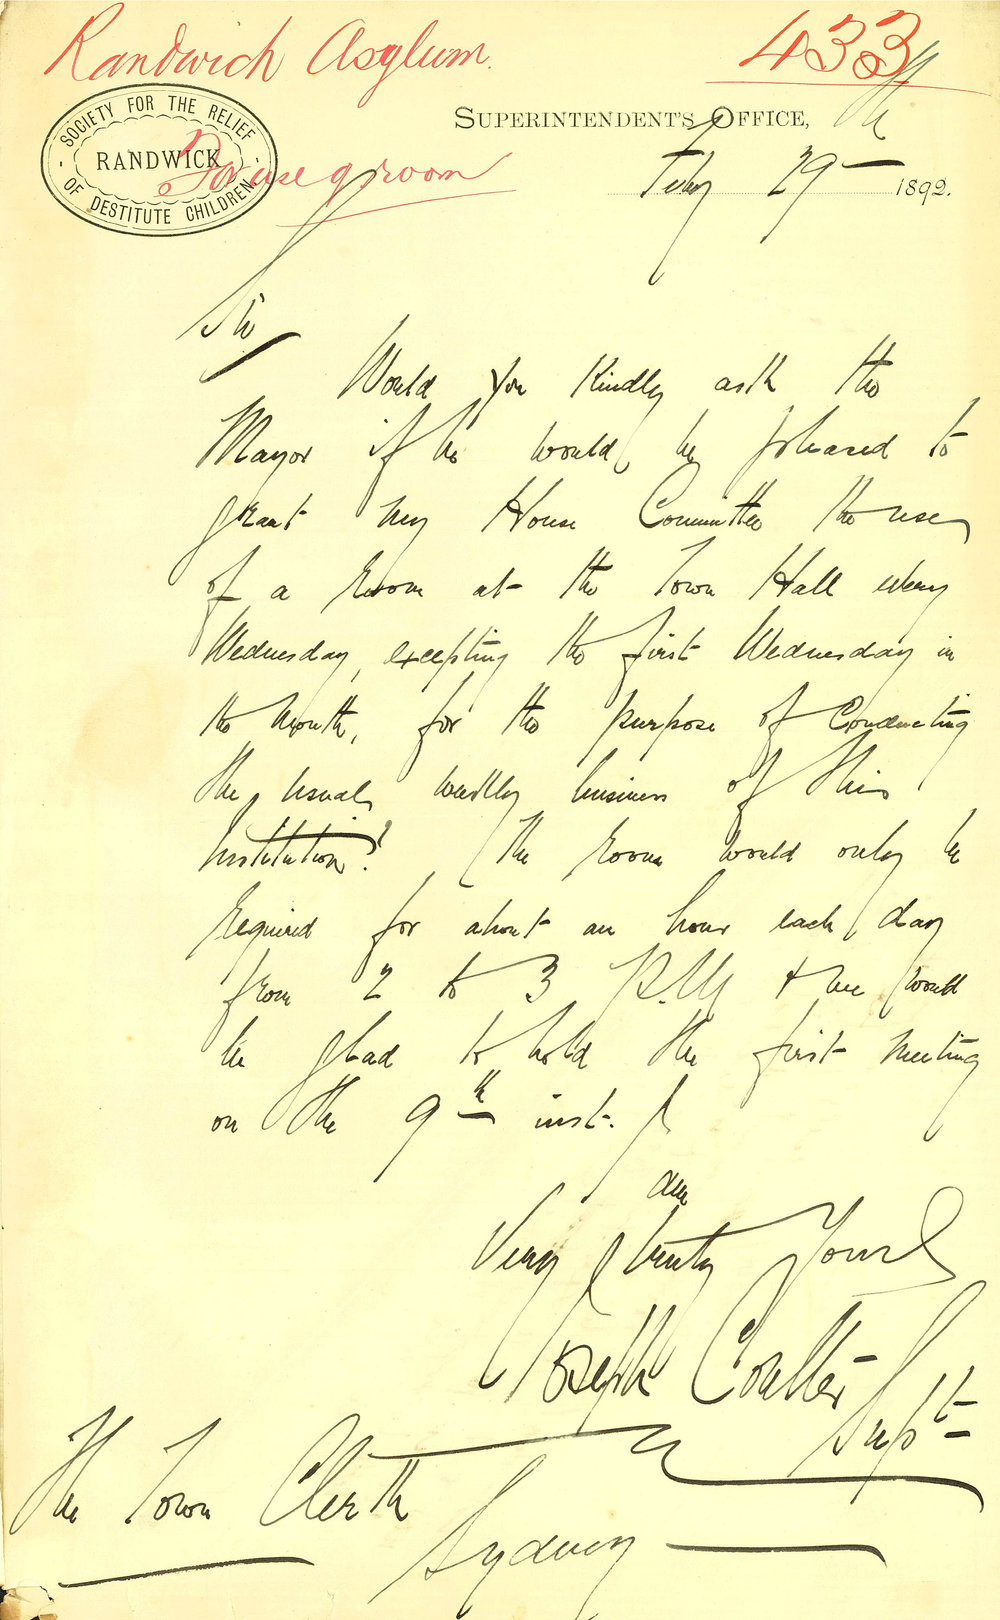 Randwich Asylum.
433
SOCIETY FOR THE RELIEF
RANDWICK
OF DESTITUTE CHILDREN
SUPERINTENDENT'S OFFICE,
For use of room
Feby 29th 1892.
Sir
Would you Kindly ask the
Mayor if he would be pleased to
grant my House Committee the use
of a Room at the Town Hall every
Wednesday, excepting the first Wednesday in
the Month, for the purpose of Conducting
the usual weekly business of this
Institution? The Room would only be
required for about an hour each day
from 2 to 3 P.M & we would
be glad to hold the first meeting
on the 9th inst. I
am
Very truly Yours
Joseph Coulter
Supt
The Town Clerk
Sydney